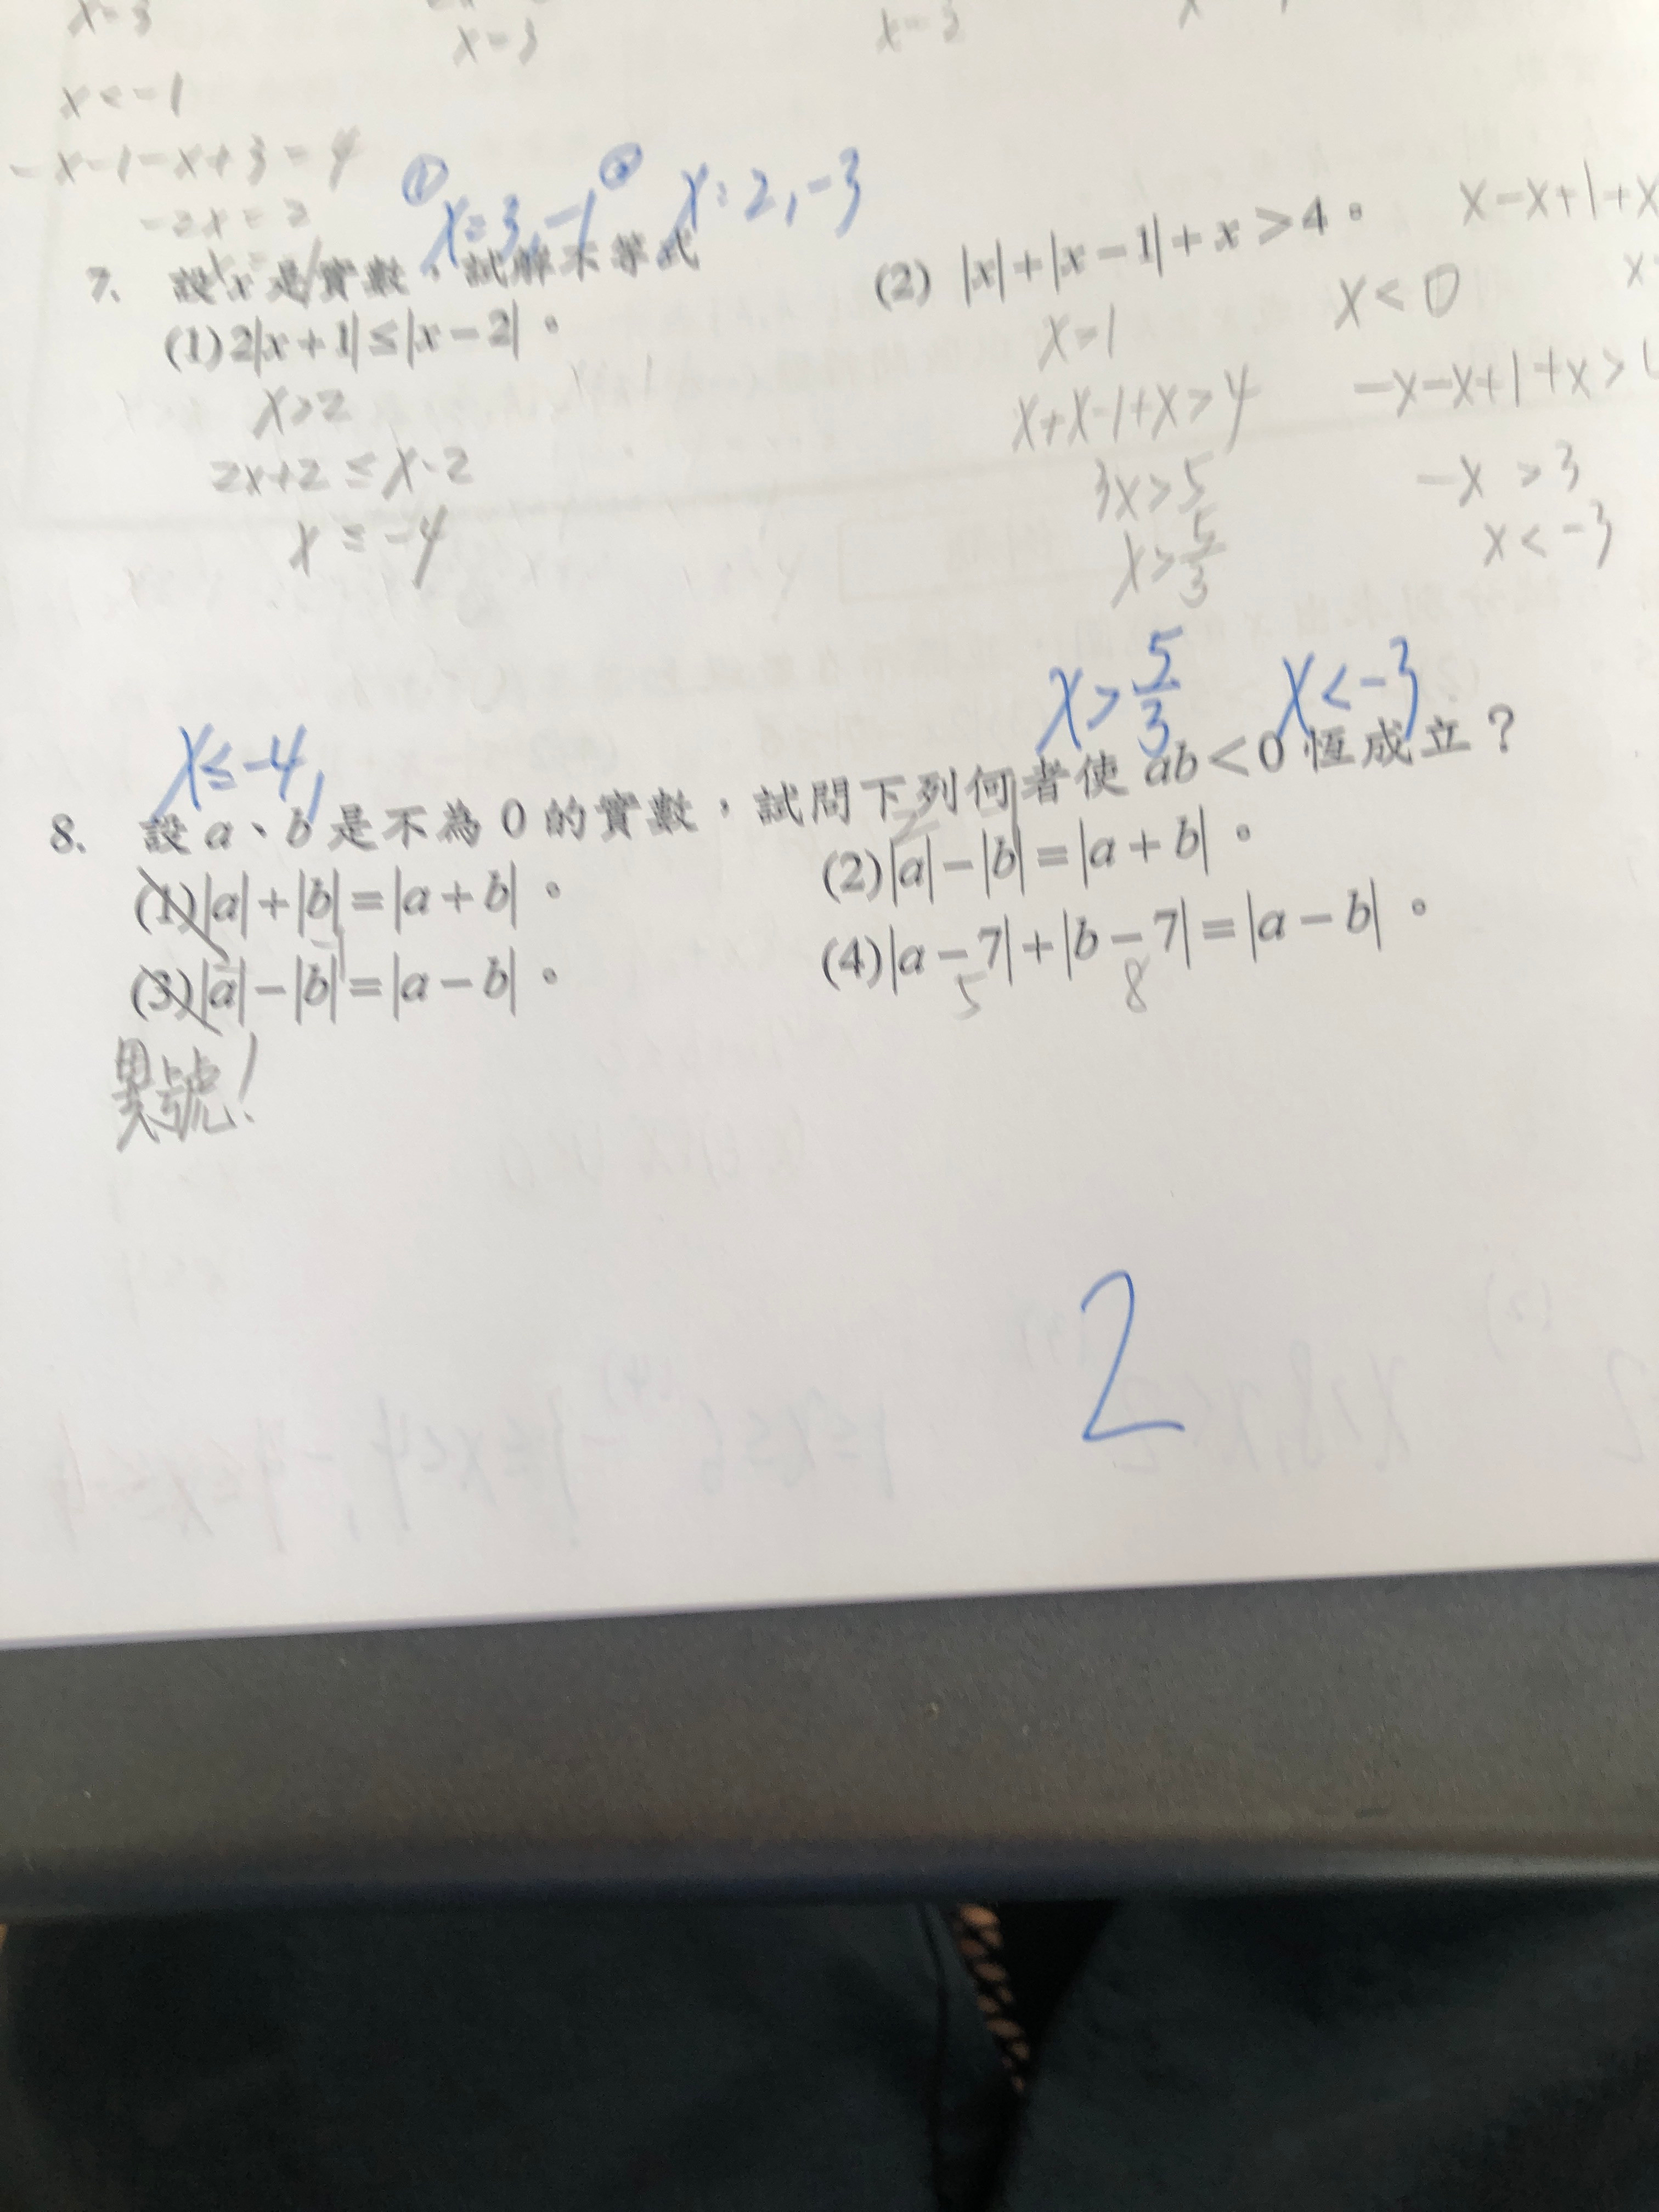 x=3
x=3
x=3
x<-1
-x-1-x+3=4
-2x=2
① x=3,-1 ② x=2,-3
x-x+1+x
7. 設 x 是實數,試解不等式
(1) 2|x+1|≤|x-2|。
(2) |x|+|x-1|+x>4。
x>2
2x+2≤x-2
x≤-4
x=1
x+x-1+x>4
3x>5
x>5/3
x<0
-x-x+1+x>4
-x>3
x<-3
x≤-4,
x>5/3 x<-3
8. 設 a、b 是不為 0 的實數,試問下列何者使 ab<0 恆成立?
(1)|a|+|b|=|a+b|。
(2)|a|-|b|=|a+b|。
(3)|a|-|b|=|a-b|。
(4)|a-7|+|b-7|=|a-b|。
5 8
異號!
2